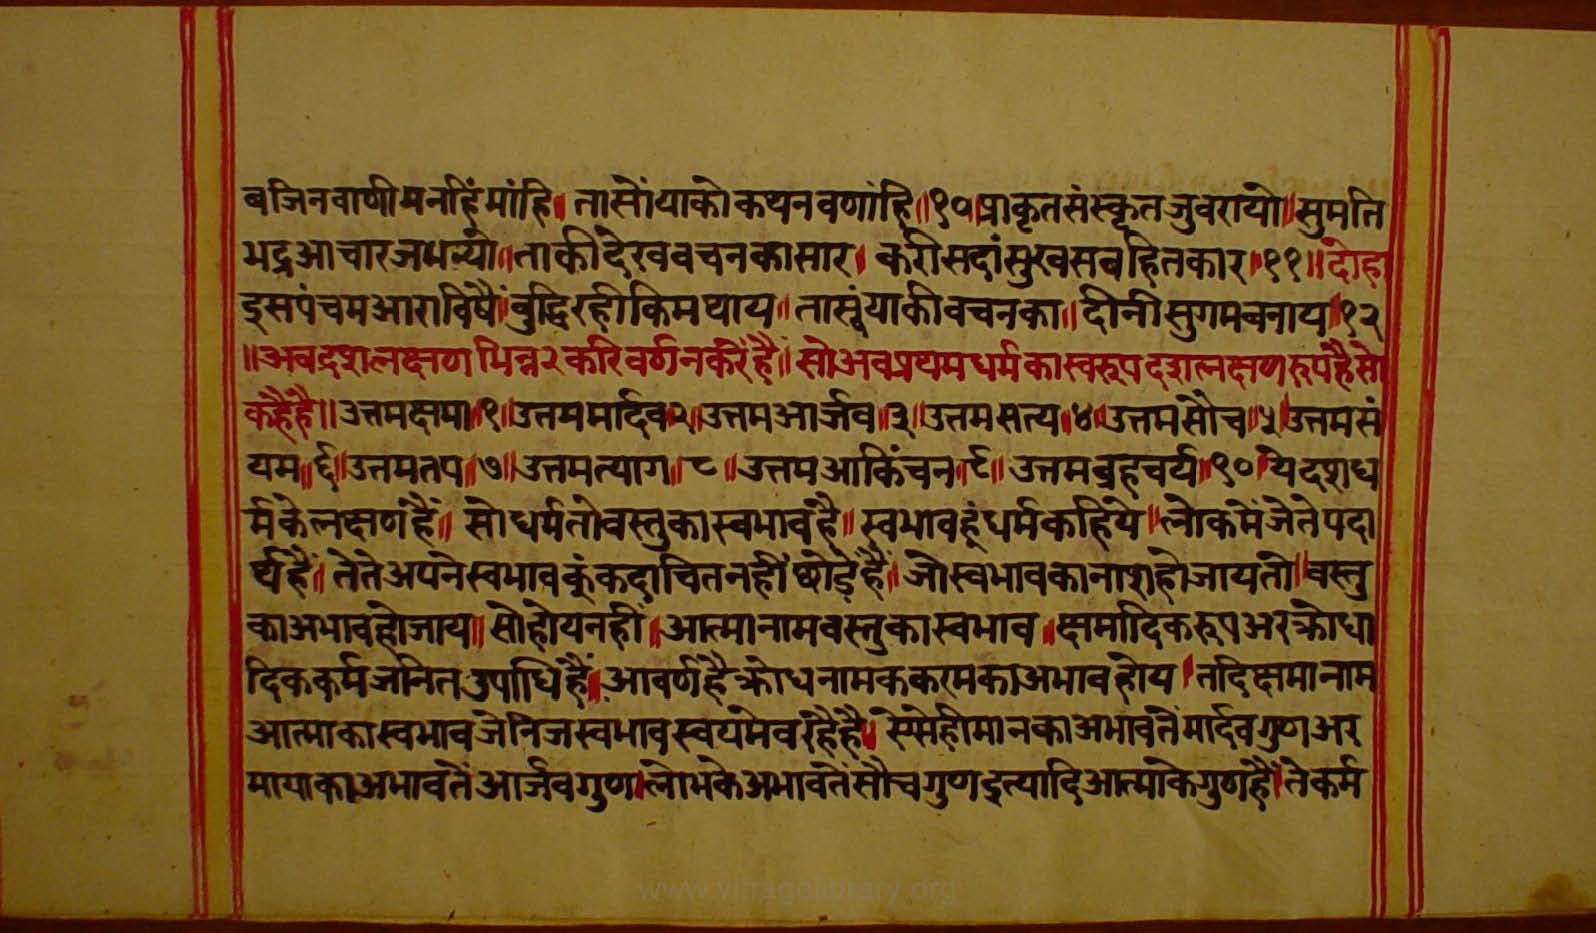 बजिनवाणीमनहिंमांहि। तासोंयाकोकथनवणांहि॥१०॥प्राकृतसंस्कृतजुवरायो॥सुमति
भद्रआचारजभन्यो॥ताकीदेखवचनकासार। करीसदांसुखसबहितकार॥११॥दोहा
इसपंचमआराविषैं॥बुद्धिरहीकिमथाय॥तासूंयाकीवचनका॥दीनीसुगमबनाय॥१२
॥अबदशलक्षणभिन्न२करिवर्णनकरिंहै॥सोअबप्रथमधर्मकास्वरूपदशलक्षणरूपहैसो
कहैहै॥उत्तमक्षमा॥१॥उत्तममार्दव२॥उत्तमआर्जव॥३॥उत्तमसत्य॥४॥उत्तमसौच॥५॥उत्तमसं
यम॥६॥उत्तमतप॥७॥उत्तमत्याग॥८॥उत्तमआकिंचन॥९॥उत्तमब्रहचर्य॥१०॥येदशध
र्मकेलक्षणहैं॥सोधर्मतोवस्तुकास्वभावहै॥स्वभावहूंधर्मकहिये॥लोकमेंजेतेपदा
र्थहैं॥तेतेअपनेस्वभावकूंकदाचितनहींछोड़ेहैं॥जोस्वभावकानाशहोजायतो॥वस्तु
काअभावहोजाय॥सोहोयनहीं॥आत्मानामवस्तुकास्वभाव॥क्षमादिकरूपअरक्रोधा
दिककर्मजनितउपाधिहैं॥आवर्णहैक्रोधनामककरमकाअभावहोय।तदिक्षमानाम
आत्माकास्वभावजेनिजस्वभावस्वयमेवरहैहै॥स्येसेहीमानकाअभावतेंमार्दवगुणअर
मायाकाअभावतेंआर्जवगुण।लोभकेअभावतेंसौचगुणइत्यादिआत्माकेगुणहैं॥तेकर्म
www.vitragolibrary.org